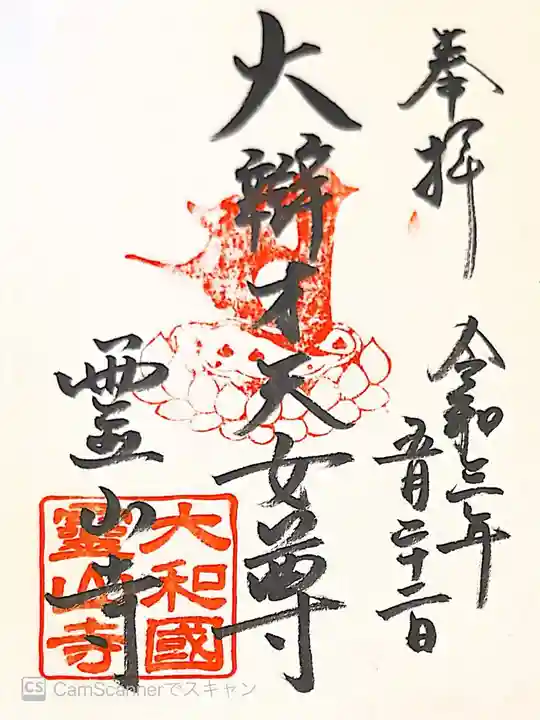 奉拝
令和三年
五月二十二日
大辨才天女尊
霊山寺
大和國
靈山寺
CS CamScannerでスキャン